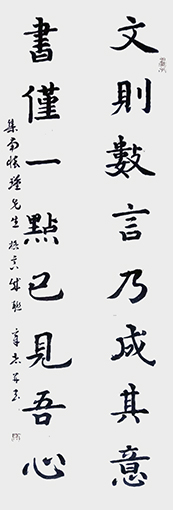 文則數言乃成其意
書僅一點已見吾心
集南懷瑾先生